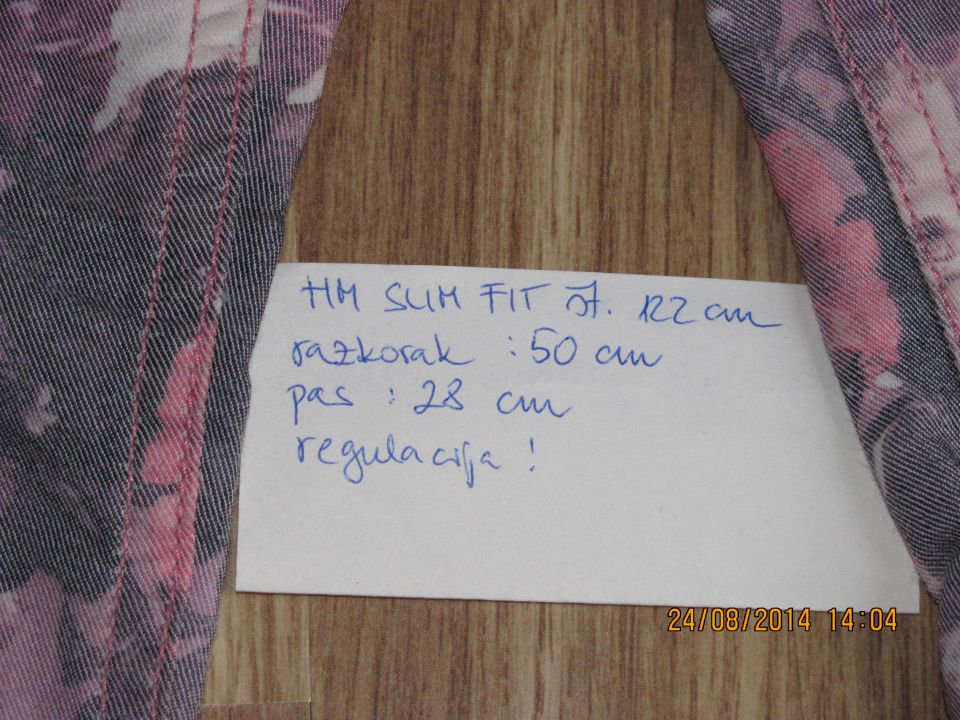 HM SLIM FIT št. 122 cm
razkorak : 50 cm
pas : 28 cm
regulacija !
24/08/2014 14:04